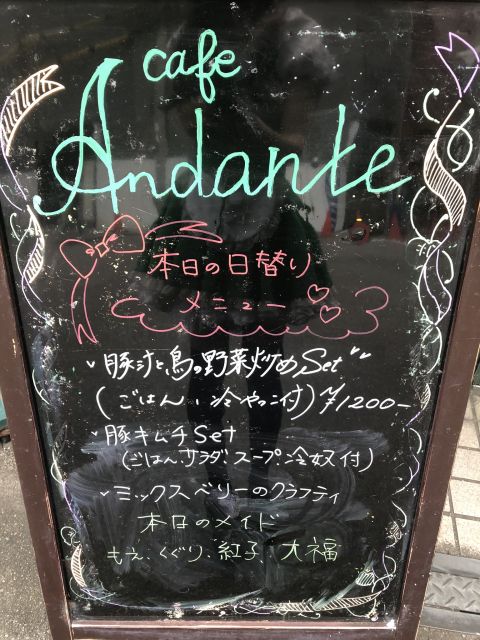 cafe
Andante
本日の日替り
メニュー
豚汁と鳥の野菜炒めSet
(ごはん、冷やっこ付) ¥1200-
豚キムチSet
(ごはん、サラダ、スープ、冷奴付)
ミックスベリーのクラフティ
本日のメイド
もえ、くぐり、紅子、大福